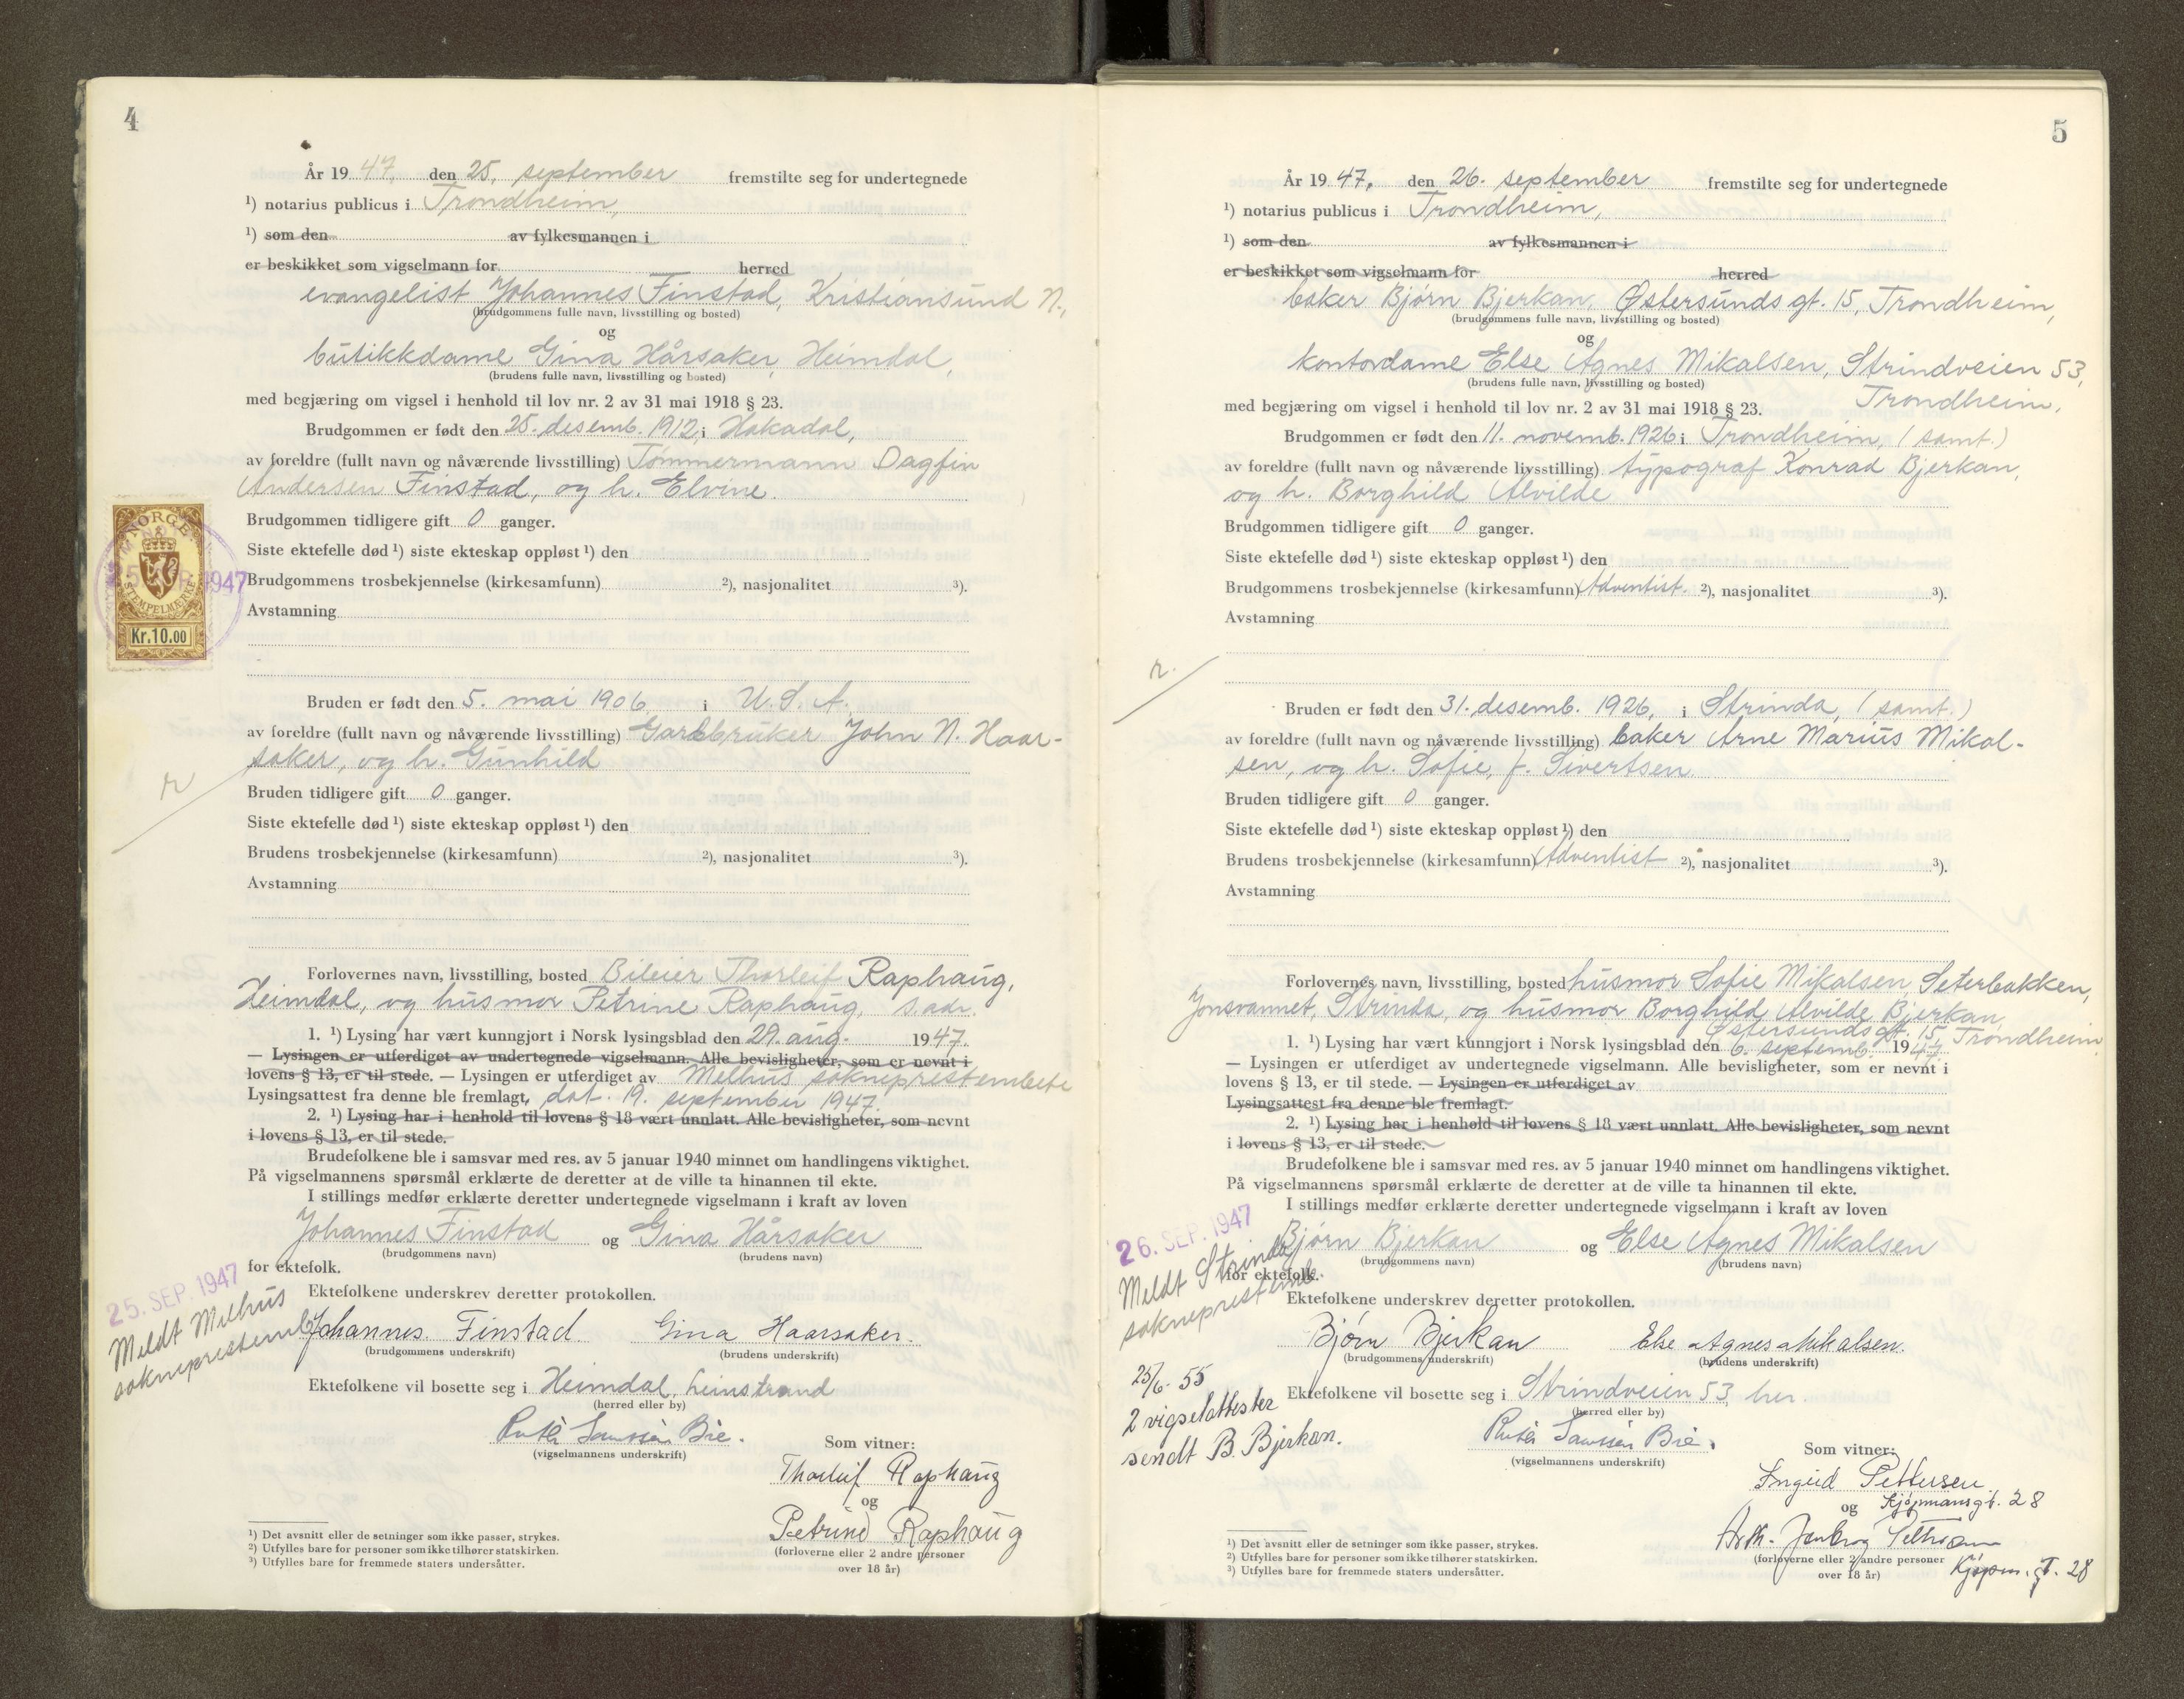 4
År 1947, den 25. september fremstilte seg for undertegnede
¹) notarius publicus i Trondheim,
¹) som den av fylkesmannen i
er beskikket som vigselmann for herred
evangelist Johannes Finstad, Kristiansund N.,
(brudgommens fulle navn, livsstilling og bosted)
og
butikkdame Gina Hårsaker, Heimdal,
(brudens fulle navn, livsstilling og bosted)
med begjæring om vigsel i henhold til lov nr. 2 av 31 mai 1918 § 23.
Brudgommen er født den 25. desemb. 1912, i Hakadal,
av foreldre (fullt navn og nåværende livsstilling) Tømmermann Dagfin
Andersen Finstad, og h. Elvine.
Brudgommen tidligere gift 0 ganger.
Siste ektefelle død ¹) siste ekteskap oppløst ¹) den
Brudgommens trosbekjennelse (kirkesamfunn) ²), nasjonalitet ³).
Avstamning
NORGE
STEMPELMERKE
Kr.10.00
25 SEP. 1947
Bruden er født den 5. mai 1906, i U.S.A.,
av foreldre (fullt navn og nåværende livsstilling) Gardbruker John N. Haar-
saker, og h. Gunhild
r
Bruden tidligere gift 0 ganger.
Siste ektefelle død ¹) siste ekteskap oppløst ¹) den
Brudens trosbekjennelse (kirkesamfunn) ²), nasjonalitet ³).
Avstamning
Forlovernes navn, livsstilling, bosted Bileier Thorleif Raphaug,
Heimdal, og husmor Petrine Raphaug, s. adr.
1. ¹) Lysing har vært kunngjort i Norsk lysingsblad den 29. aug. 1947.
— Lysingen er utferdiget av undertegnede vigselmann. Alle bevisligheter, som er nevnt i
lovens § 13, er til stede. — Lysingen er utferdiget av Melhus sokneprestembete
Lysingsattest fra denne ble fremlagt, dat. 19. september 1947.
2. ¹) Lysing har i henhold til lovens § 18 vært unnlatt. Alle bevisligheter, som nevnt
i lovens § 13, er til stede.
Brudefolkene ble i samsvar med res. av 5 januar 1940 minnet om handlingens viktighet.
På vigselmannens spørsmål erklærte de deretter at de ville ta hinannen til ekte.
I stillings medfør erklærte deretter undertegnede vigselmann i kraft av loven
Johannes Finstad og Gina Hårsaker
(brudgommens navn) (brudens navn)
for ektefolk.
25. SEP. 1947
Meldt Melhus
sokneprestemb.
Ektefolkene underskrev deretter protokollen.
Johannes Finstad Gina Haarsaker.
(brudgommens underskrift) (brudens underskrift)
Ektefolkene vil bosette seg i Heimdal, Leinstrand
(herred eller by)
Bie.
(vigselmannens underskrift)
Som vitner:
Thorleif Raphaug
og
Petrine Raphaug
(forloverne eller 2 andre personer
over 18 år)
¹) Det avsnitt eller de setninger som ikke passer, strykes.
²) Utfylles bare for personer som ikke tilhører statskirken.
³) Utfylles bare for fremmede staters undersåtter.
5
År 1947, den 26. september fremstilte seg for undertegnede
¹) notarius publicus i Trondheim,
¹) som den av fylkesmannen i
er beskikket som vigselmann for herred
baker Bjørn Bjerkan, Østersunds gt. 15, Trondheim,
(brudgommens fulle navn, livsstilling og bosted)
og
kontordame Else Agnes Mikalsen, Strindveien 53,
(brudens fulle navn, livsstilling og bosted)
Trondheim,
med begjæring om vigsel i henhold til lov nr. 2 av 31 mai 1918 § 23.
Brudgommen er født den 11. novemb. 1926 i Trondheim, (samt.)
av foreldre (fullt navn og nåværende livsstilling) typograf Konrad Bjerkan,
og h. Borghild Alvilde
Brudgommen tidligere gift 0 ganger.
Siste ektefelle død ¹) siste ekteskap oppløst ¹) den
Brudgommens trosbekjennelse (kirkesamfunn) Adventist. ²), nasjonalitet ³).
Avstamning
r.
Bruden er født den 31. desemb. 1926, i Strinda, (samt.)
av foreldre (fullt navn og nåværende livsstilling) baker Arne Marius Mikal-
sen, og h. Sofie, f. Sivertsen
Bruden tidligere gift 0 ganger.
Siste ektefelle død ¹) siste ekteskap oppløst ¹) den
Brudens trosbekjennelse (kirkesamfunn) Adventist ²), nasjonalitet ³).
Avstamning
Forlovernes navn, livsstilling, bosted husmor Sofie Mikalsen, Seterbakken,
Jonsvannet, Strinda, og husmor Borghild Alvilde Bjerkan,
Østersundsgt. 15, Trondheim
1. ¹) Lysing har vært kunngjort i Norsk lysingsblad den 6. septemb. 1947
— Lysingen er utferdiget av undertegnede vigselmann. Alle bevisligheter, som er nevnt i
lovens § 13, er til stede. — Lysingen er utferdiget av
Lysingsattest fra denne ble fremlagt.
2. ¹) Lysing har i henhold til lovens § 18 vært unnlatt. Alle bevisligheter, som nevnt
i lovens § 13, er til stede.
Brudefolkene ble i samsvar med res. av 5 januar 1940 minnet om handlingens viktighet.
På vigselmannens spørsmål erklærte de deretter at de ville ta hinannen til ekte.
I stillings medfør erklærte deretter undertegnede vigselmann i kraft av loven
Bjørn Bjerkan og Else Agnes Mikalsen
(brudgommens navn) (brudens navn)
for ektefolk.
26. SEP. 1947
Meldt Strinda
sokneprestemb.
Ektefolkene underskrev deretter protokollen.
Bjørn Bjerkan Else Agnes Mikalsen.
(brudgommens underskrift) (brudens underskrift)
25/6. 55
2 vigselattester
sendt B. Bjerkan.
Ektefolkene vil bosette seg i Strindveien 53, her.
(herred eller by)
Bie.
(vigselmannens underskrift)
Som vitner:
Ingrid Pettersen
og Kjøpmansgt. 28
Pettersen
(forloverne eller 2 andre personer
over 18 år)
Kjøpm. gt. 28
¹) Det avsnitt eller de setninger som ikke passer, strykes.
²) Utfylles bare for personer som ikke tilhører statskirken.
³) Utfylles bare for fremmede staters undersåtter.